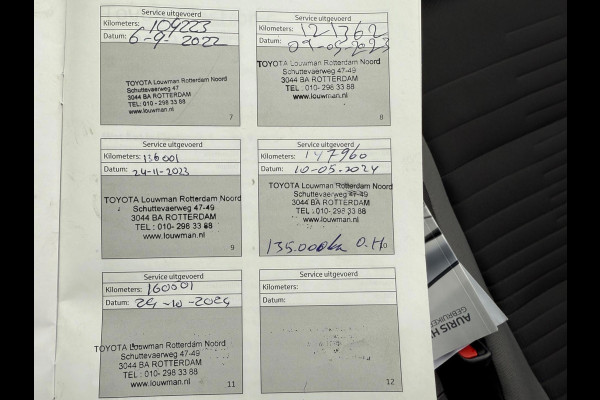 Service uitgevoerd
Kilometers: 104223
Datum: 6-9-2022
TOYOTA Louwman Rotterdam Noord
Schuttevaerweg 47
3044 BA ROTTERDAM
TEL: 010-298 33 88
www.louwman.nl
7
Service uitgevoerd
Kilometers: 121362
Datum: 09-05-2023
TOYOTA Louwman Rotterdam Noord
Schuttevaerweg 47-49
3044 BA ROTTERDAM
TEL : 010- 298 33 88
www.louwman.nl
8
Service uitgevoerd
Kilometers: 136001
Datum: 24-11-2023
TOYOTA Louwman Rotterdam Noord
Schuttevaerweg 47-49
3044 BA ROTTERDAM
TEL : 010- 298 33 88
www.louwman.nl
9
Service uitgevoerd
Kilometers: 147960
Datum: 10-05-2024
TOYOTA Louwman Rotterdam Noord
Schuttevaerweg 47-49
3044 BA ROTTERDAM
TEL : 010- 298 33 88
www.louwman.nl
135.000km O.H
10
Service uitgevoerd
Kilometers: 160001
Datum: 24-10-2024
TOYOTA Louwman Rotterdam Noord
Schuttevaerweg 47-49
3044 BA ROTTERDAM
TEL : 010- 298 33 88
www.louwman.nl
11
Service uitgevoerd
Kilometers:
Datum:
12
AURIS